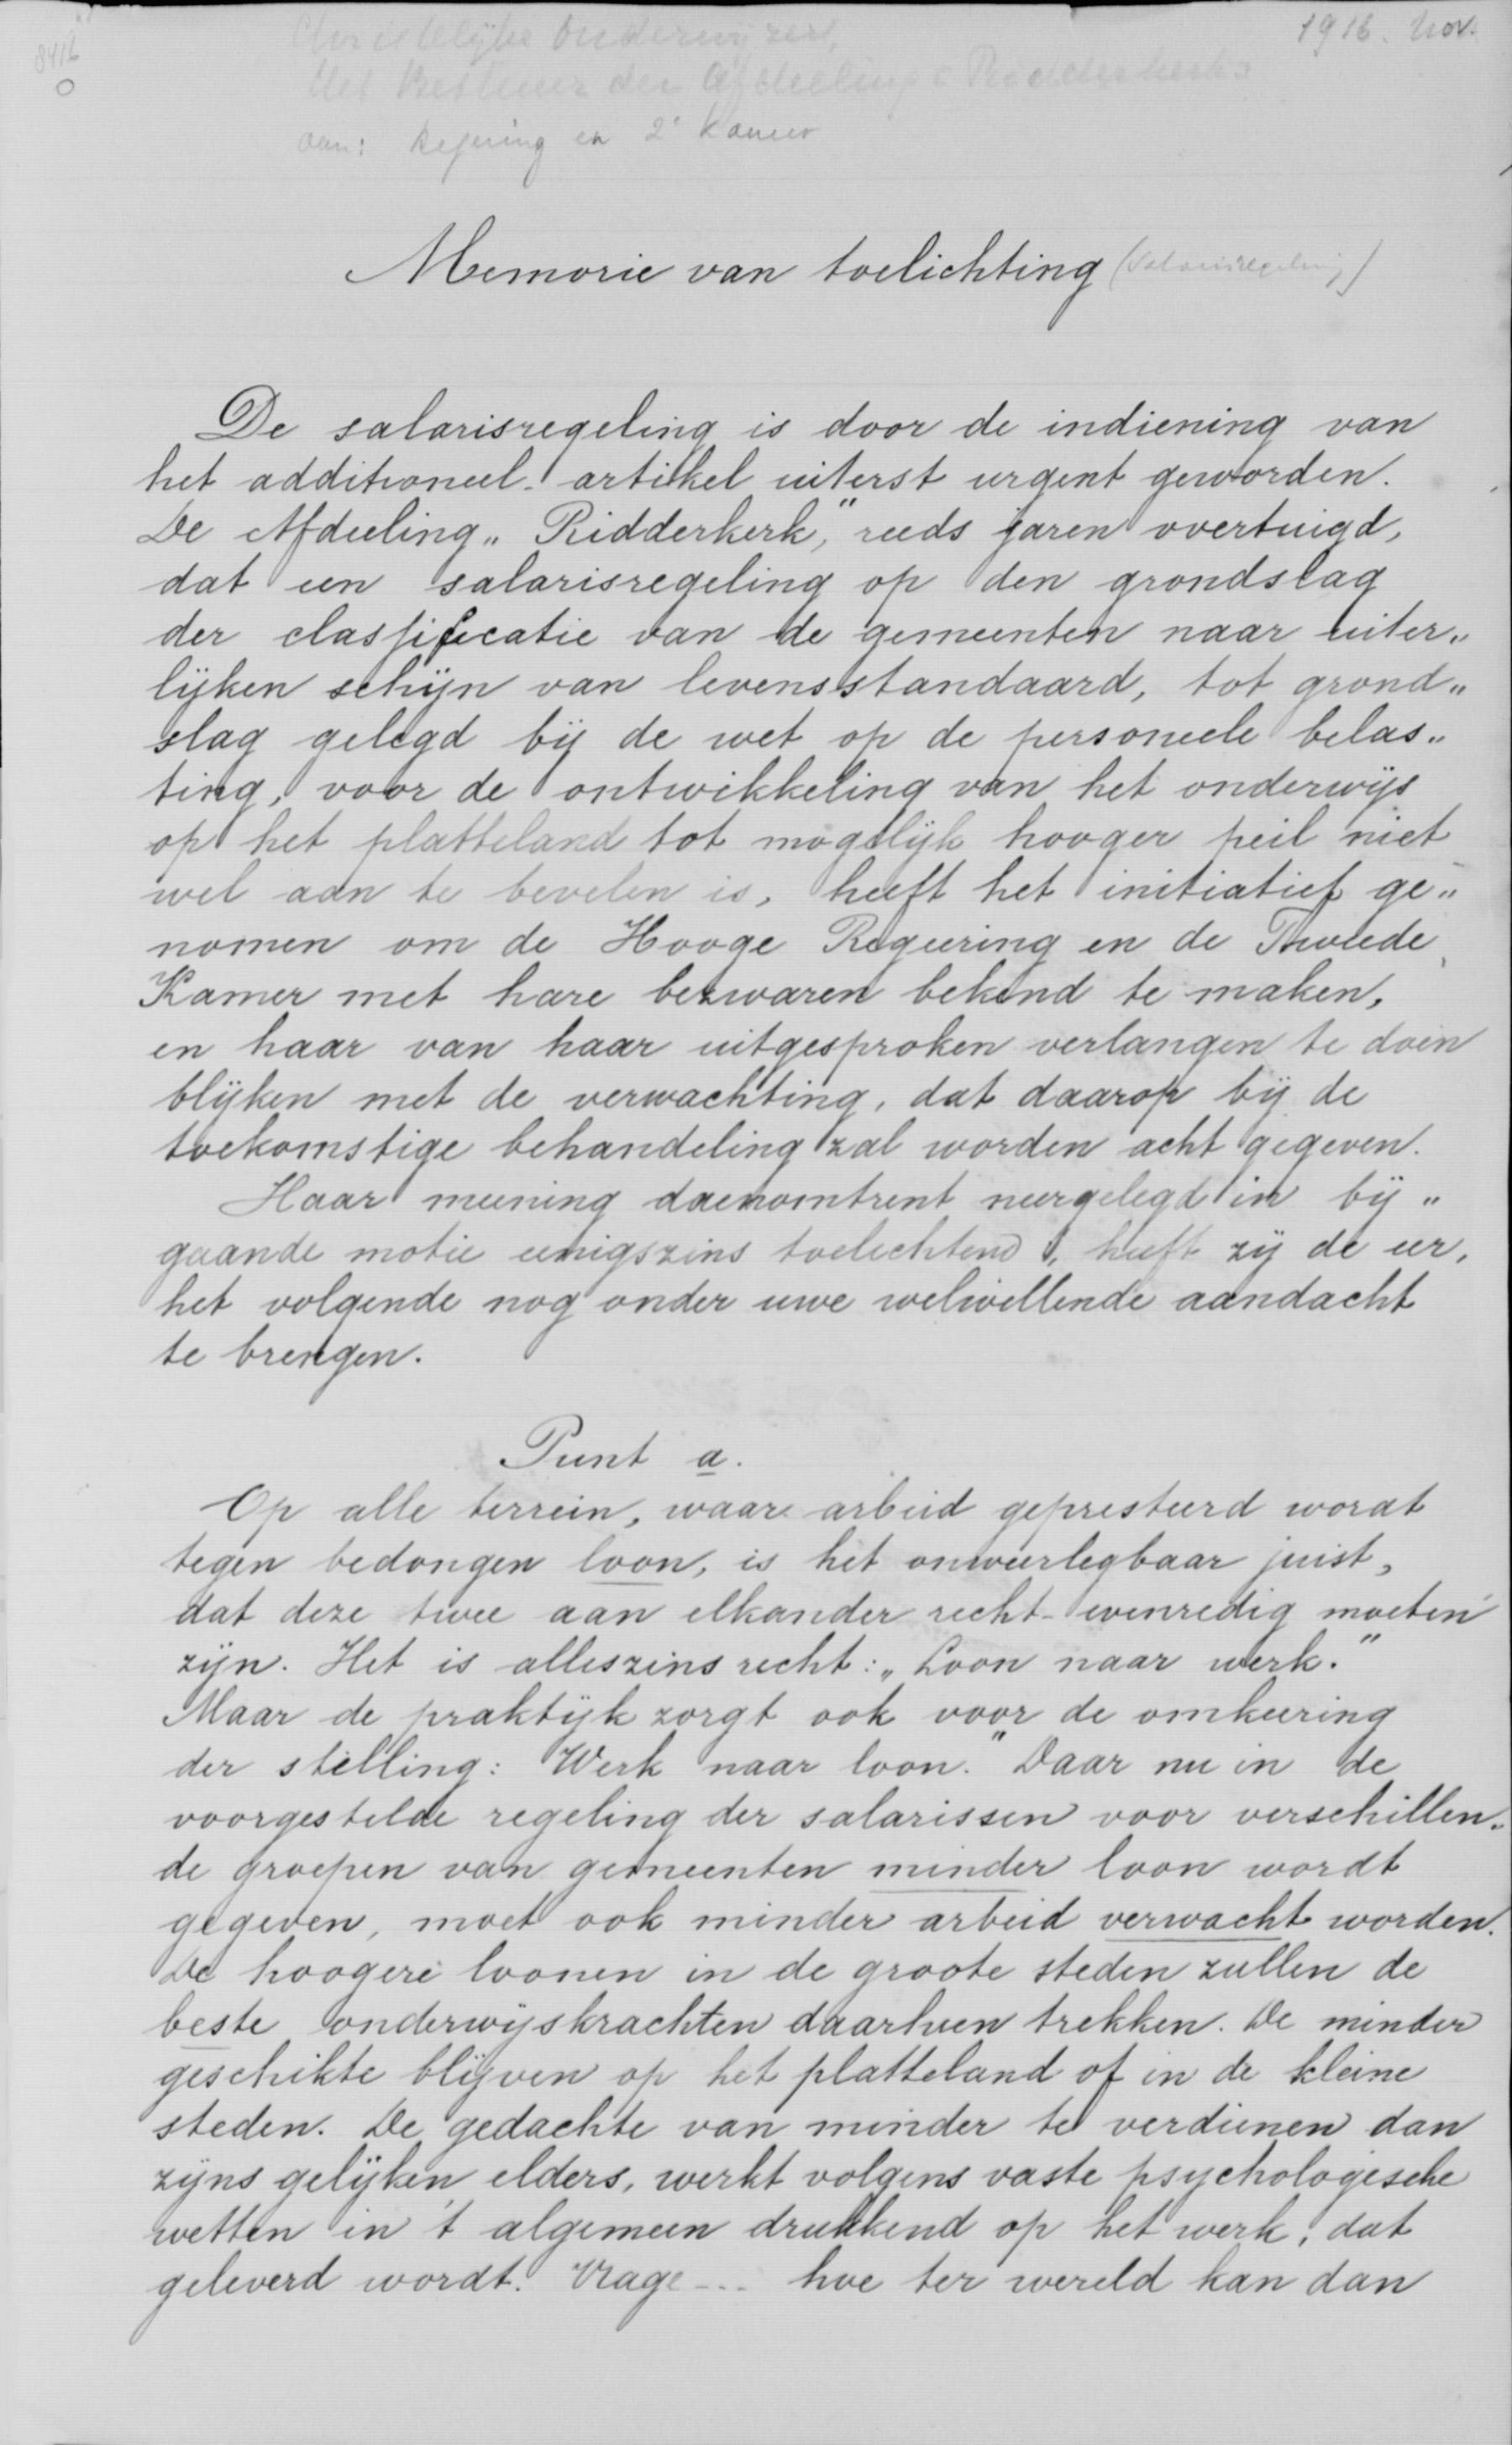 1916. Nov.
8416
Het Bestuur der Afdeeling "Ridderkerk"
aan: Regering en 2e Kamer
Memorie van toelichting (Salarisregeling)
De salarisregeling is door de indiening van
het additioneel-artikel uiterst urgent geworden.
De Afdeeling „Ridderkerk," reeds jaren overtuigd,
dat een salarisregeling op den grondslag
der classificatie van de gemeenten naar uiter„
lijken schijn van levensstandaard, tot grond„
slag gelegd bij de wet op de personeele belas„
ting, voor de ontwikkeling van het onderwijs
op het platteland tot mogelijk hooger peil niet
wel aan te bevelen is, heeft het initiatief ge„
nomen om de Hooge Regeering en de Tweede
Kamer met hare bezwaren bekend te maken,
en haar van haar uitgesproken verlangen te doen
blijken met de verwachting, dat daarop bij de
toekomstige behandeling zal worden acht gegeven.
Haar meening daaromtrent neergelegd in bij„
gaande motie eenigszins toelichtend, heeft zij de eer,
het volgende nog onder uwe welwillende aandacht
te brengen.
Punt a.
Op alle terrein, waar arbeid gepresteerd wordt
tegen bedongen loon, is het onweerlegbaar juist,
dat deze twee aan elkander recht-evenredig moeten
zijn. Het is alleszins recht: „Loon naar werk."
Maar de praktijk zorgt ook voor de omkeering
der stelling: Werk naar loon." Daar nu in de
voorgestelde regeling der salarissen voor verschillen„
de groepen van gemeenten minder loon wordt
gegeven, moet ook minder arbeid verwacht worden.
De hoogere loonen in de groote steden zullen de
beste onderwijskrachten daarheen trekken. De minder
geschikte blijven op het platteland of in de kleine
steden. De gedachte van minder te verdienen dan
zijns gelijken elders, werkt volgens vaste psychologische
wetten in 't algemeen drukkend op het werk, dat
geleverd wordt. Vrage --- hoe ter wereld kan dan